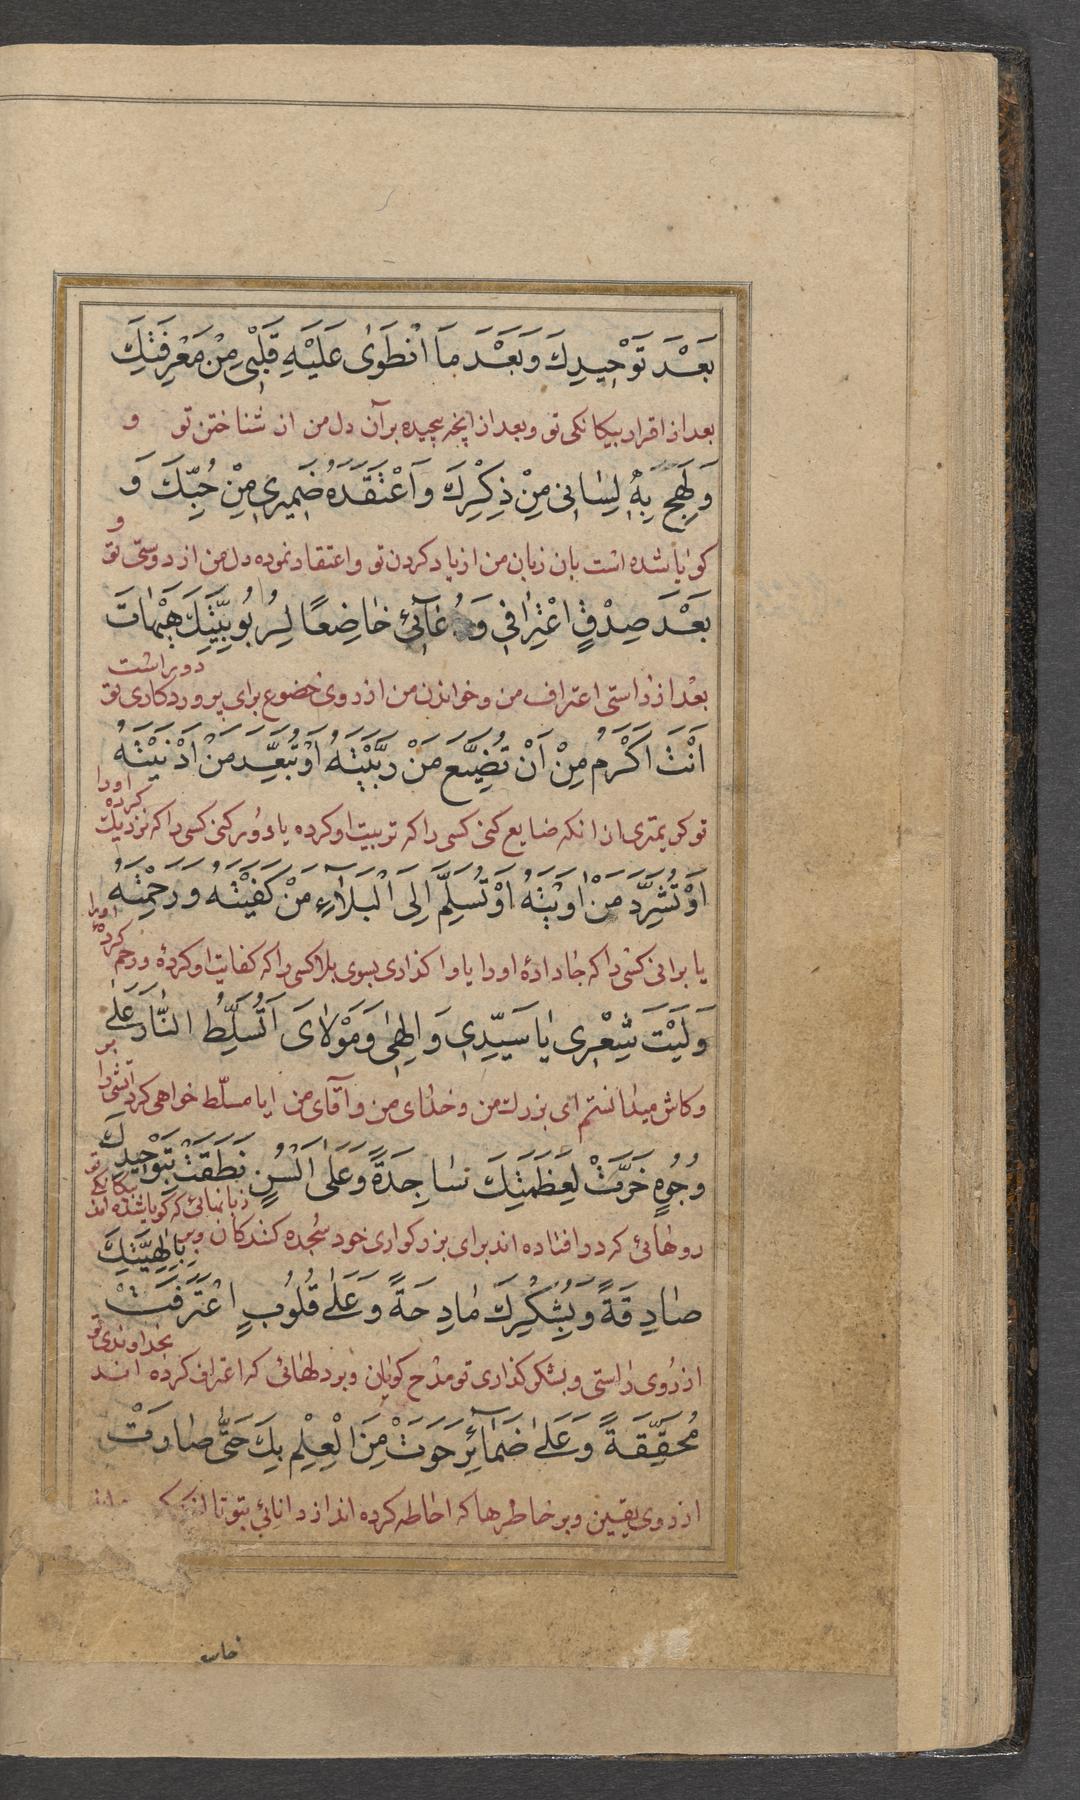 بَعْدَ تَوْحِيدِكَ وَبَعْدَ مَا انْطَوٰى عَلَيْهِ قَلْبِي مِنْ مَعْرِفَتِكَ
بعد از اقرار بيكانكى تو و بعد از انچه پيچيده بر آن دل من از شناختن تو و
وَلَهِجَ بِهِ لِسَانِي مِنْ ذِكْرِكَ وَاعْتَقَدَهُ ضَمِيرِي مِنْ حُبِّكَ وَ
كويا شده است بان زبان من از ياد كردن تو و اعتقاد نموده دل من از دوستى تو و
بَعْدَ صِدْقِ اعْتِرَافِي وَدُعَآئِي خَاضِعًا لِرُبُوبِيَّتِكَ هَيْهَاتَ
بعد از راستى اعتراف من و خواندن من از روى خضوع براى پروردكارى تو دور است
اَنْتَ اَكْرَمُ مِنْ اَنْ تُضَيِّعَ مَنْ رَبَّيْتَهُ اَوْ تُبَعِّدَ مَنْ اَدْنَيْتَهُ
تو كريمترى از انكه ضايع كنى كسى را كه تربيت او كرده يا دور كنى كسى را كه نزديك كرده اورا
اَوْ تُشَرِّدَ مَنْ اٰوَيْتَهُ اَوْ تُسَلِّمَ اِلَى الْبَلَآءِ مَنْ كَفَيْتَهُ وَرَحِمْتَهُ
يا برانى كسى را كه جا دادهٔ اورا يا واكذارى بسوى بلا كسى را كه كفايت او كردهٔ و رحم كردهٔ اورا
وَلَيْتَ شِعْرِي يَا سَيِّدِي وَاِلٰهِي وَمَوْلَايَ اَتُسَلِّطُ النَّارَ عَلَى
و كاش ميدانستم اى بزرك من و خداى من و آقاى من ايا مسلّط خواهى كرد آتش را بر
وُجُوهٍ خَرَّتْ لِعَظَمَتِكَ سَاجِدَةً وَعَلَى اَلْسُنٍ نَطَقَتْ بِتَوْحِيدِكَ
روهائى كه در افتاده اند براى بزركوارى خود سجده كنندكان و بر زبانهائى كه كويا شده اند بيكانكى تو
صَادِقَةً وَبِشُكْرِكَ مَادِحَةً وَعَلَى قُلُوبٍ اعْتَرَفَتْ بِاِلٰهِيَّتِكَ
از روى راستى و بشكر كذارى تو مدح كويان و بر دلهائى كه اعتراف كرده اند بخداوندى تو
مُحَقِّقَةً وَعَلَى ضَمَآئِرَ حَوَتْ مِنَ الْعِلْمِ بِكَ حَتَّى صَارَتْ
از روى يقين و بر خاطرها كه احاطه كرده اند از دانائى بتو تا
خاشعه